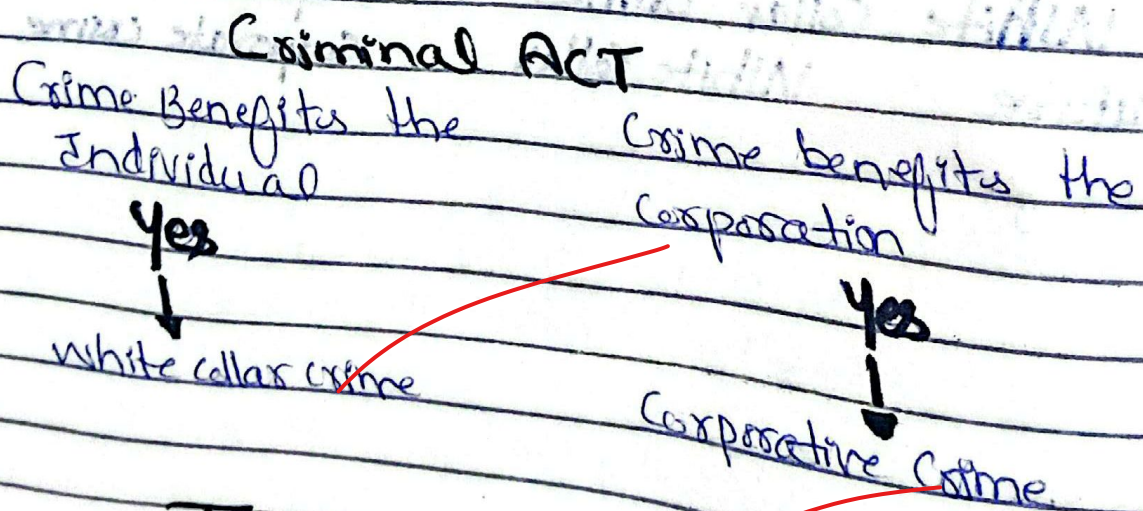 Criminal ACT
Crime Benefits the
Individual
Yes
White collar crime
Crime benefits the
Corporation
Yes
Corporative Crime